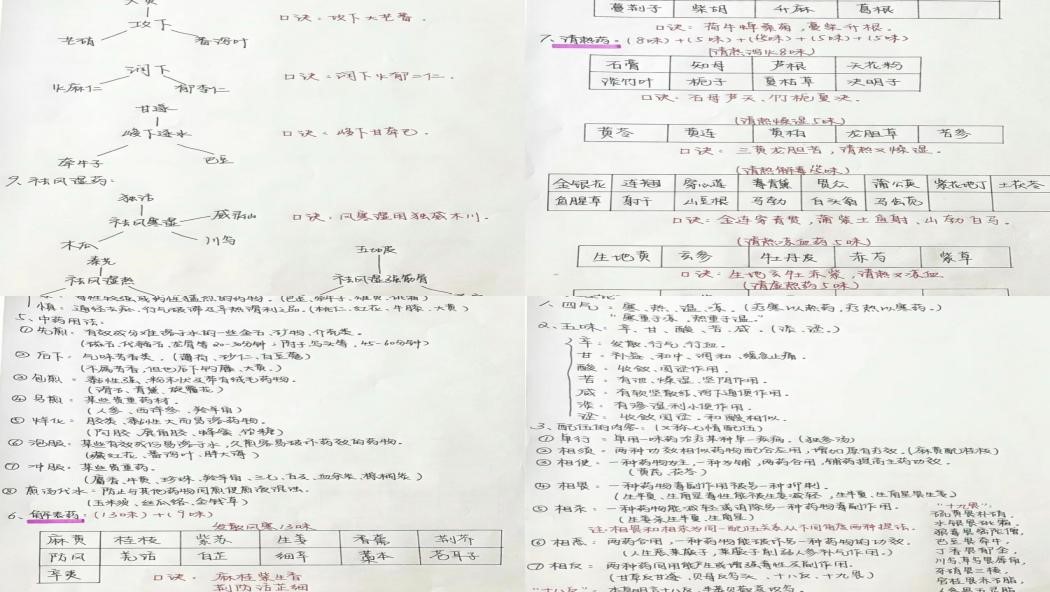 大黄
攻下
芒硝
番泻叶
口诀：攻下大芒番．
润下
火麻仁
郁李仁
口诀：润下火郁二仁．
甘遂
峻下逐水
牵牛子
巴豆
口诀：峻下甘牵巴．
9、祛风湿药：
独活
祛风寒湿
威灵仙
木瓜
川乌
口诀：风寒湿用独威木川．
秦艽
祛风湿热
五加皮
祛风湿强筋骨
蔓荆子 柴胡 升麻 葛根
口诀：荷牛蝉桑菊，蔓柴升根．
7、清热药：(8味)+(5味)+(12味)+(5味)+(5味)
(清热泻火8味)
石膏 知母 芦根 天花粉
淡竹叶 栀子 夏枯草 决明子
口诀：石母芦天、竹栀夏决．
(清热燥湿5味)
黄芩 黄连 黄柏 龙胆草 苦参
口诀：三黄龙胆苦，清热又燥湿．
(清热解毒12味)
金银花 连翘 穿心莲 青黛 贯众 蒲公英 紫花地丁 土茯苓
鱼腥草 射干 山豆根 马勃 白头翁 马齿苋
口诀：金连穿青贯，蒲紫土鱼射、山勃白马．
(清热凉血药5味)
生地黄 玄参 牡丹皮 赤芍 紫草
口诀：生地玄牡赤紫，清热又凉血
(清虚热药5味)
5、中药用法：
①先煎：有效成分难溶于水的一些金石、矿物、介壳类．
②后下：气味芳香类．(薄荷、砂仁、白豆蔻)
(不属芳香，但也后下的：钩藤、大黄．)
③包煎：黏性强、粉末状及带有绒毛药物．
(滑石、青黛、旋覆花)
④另煎：某些贵重药材．
(人参、西洋参、羚羊角)
⑤烊化：胶类、黏性大而易溶药物．
(阿胶、鹿角胶、蜂蜜、饴糖)
⑥泡服：某些有效成份易溶于水，久煎容易破坏药效的药物．
(藏红花、番泻叶、胖大海)
⑦冲服：某些贵重药．
⑧煎汤代水：防止与其他药物同煎使煎液混浊．
(玉米须、丝瓜络、金钱草)
6、解表药：(13味)+(9味)
发散风寒13味
麻黄 桂枝 紫苏 生姜 香薷 荆芥
防风 羌活 白芷 细辛 藁本 苍耳子
辛夷
口诀：麻桂紫生香
荆防活芷细
1、四气：寒、热、温、凉．(疗寒以热药，疗热以寒药)
"寒重于凉，热重于温"
2、五味：辛、甘、酸、苦、咸．(淡、涩．)
辛：发散、行气、行血．
甘：补益、和中、调和、缓急止痛．
酸：收敛、固涩作用．
苦：有泄、燥湿、坚阴作用．
咸：有软坚散结、泻下通便作用．
淡：有渗湿利小便作用．
涩：收敛固涩．和酸相似．
3、配伍的内容：(又称七情配伍)
①单行：单用一味药治疗某种单一疾病．(独参汤)
②相须：两种功效相似药物配合应用，增加原有疗效．(麻黄配桂枝)
③相使：一种药物为主，一种为辅，两药合用，辅药提高主药功效．
(黄芪、茯苓)
④相畏：一种药物毒副作用被另一种抑制．
(生半夏、生南星毒性能被生姜减轻，生半夏、生南星畏生姜)
⑤相杀：一种药物能减轻或消除另一种药物毒副作用．
(生姜杀生半夏、生南星)
注：相畏和相杀为同一配伍关系从不同角度两种提法．
⑥相恶：两药合用，一种药物能破坏另一种药物的功效．
(人生恶莱菔子，莱菔子削弱人参补气作用．)
⑦相反：两种药同用能产生或增强毒性及副作用．
(甘草反甘遂、贝母反乌头、十八反、十九畏)
"十九畏"：
硫黄畏朴硝，
水银畏砒霜，
狼毒畏密陀僧，
巴豆畏牵牛，
丁香畏郁金，
川乌草乌畏犀角，
牙硝畏三棱，
官桂畏赤石脂，
"十八反"：